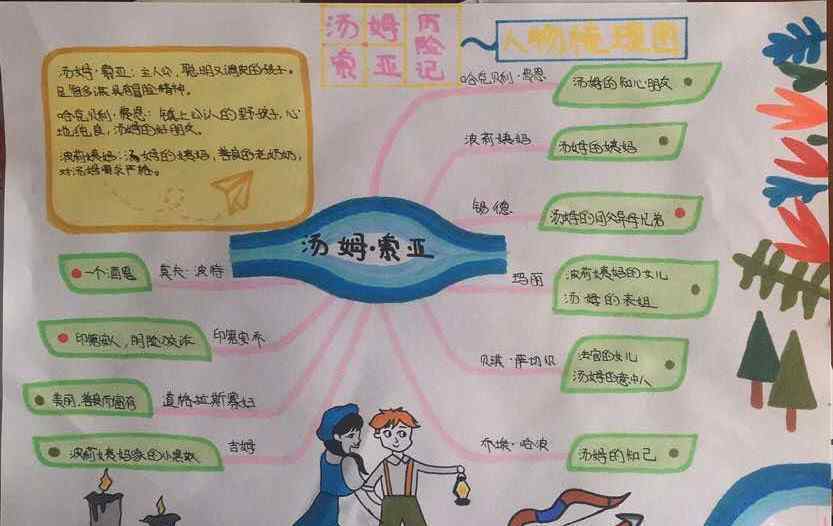 汤姆历险记
索亚
人物梳理图
汤姆·索亚：主人公，聪明又调皮的孩子。
足智多谋具有冒险精神。
哈克贝利·费恩：镇上公认的野孩子，心
地善良，汤姆的好朋友。
波莉姨妈：汤姆的姨妈，善良的老奶奶，
对汤姆要求严格。
汤姆·索亚
哈克贝利·费恩
汤姆的知心朋友
波莉姨妈
汤姆的姨妈
锡德
汤姆的同父异母兄弟
玛丽
波莉姨妈的女儿
汤姆的表姐
贝琪·萨切尔
法官的女儿
汤姆的意中人
乔埃·哈波
汤姆的知己
一个酒鬼
莫夫·波特
印第安人，阴险狡诈
印第安乔
美丽，善良而富有
道格拉斯寡妇
波莉姨妈家的小黑奴
吉姆